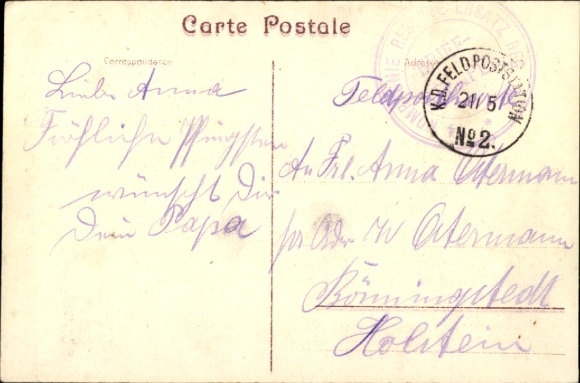 Carte Postale
Correspondance
Adresse
Liebe Anna
Fröhliche Pfingsten
wünscht Dir
Dein Papa
Feldpostkarte
K.D. FELDPOSTSTATION
21 5
No 2.
RESERVE ERSATZ REG
An Frl. Anna Ostermann
per Adr W Ostermann
Bönningstedt
Holstein